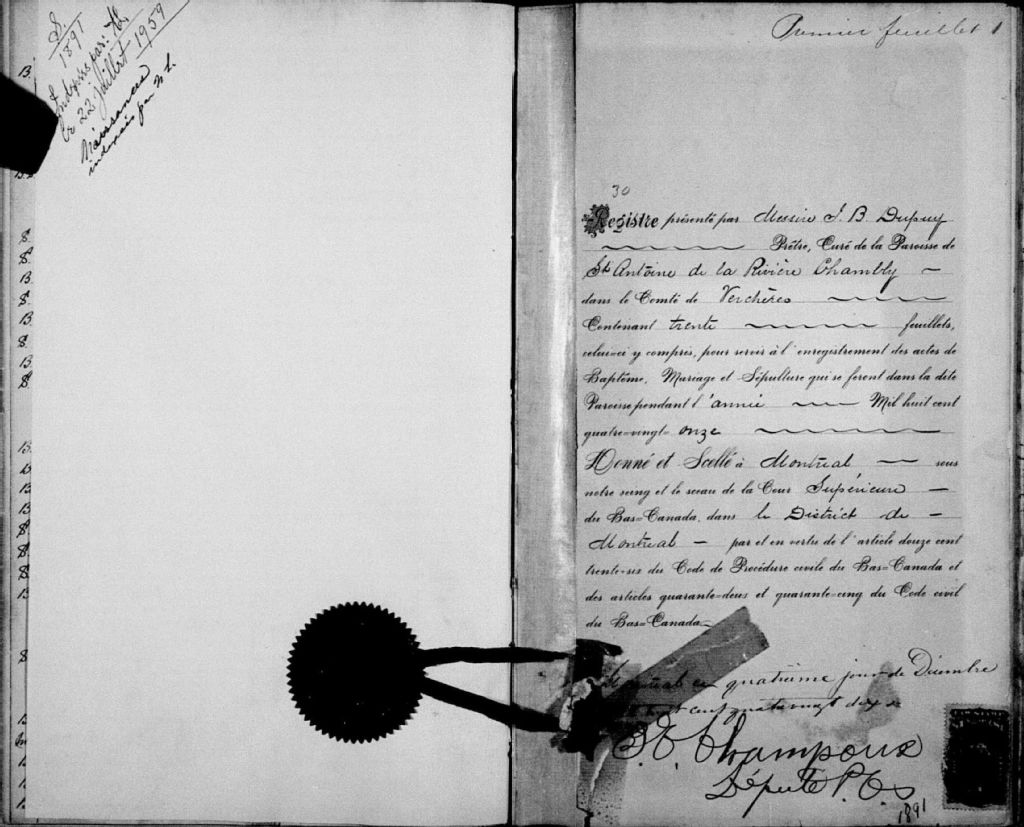 S.
1891
Indexés par: H.
le 22 Juillet 1959
Naissances
indexés par
B.
S.
S.
B.
S.
B.
S.
B.
S.
B.
B.
B.
B.
S.
S.
S.
B.
S.
Premier feuillet 1
30
Registre présenté par Messire J. B. Dupuy
Prêtre, Curé de la Paroisse de
St Antoine de la Rivière Chambly
dans le Comté de Verchères
Contenant trente feuillets,
celui-ci y compris, pour servir à l'enregistrement des actes de
Baptême, Mariage et Sépulture qui se feront dans la dite
Paroisse pendant l'année Mil huit cent
quatre-vingt-onze
Donné et Scellé à Montréal sous
notre seing et le sceau de la Cour Supérieure
du Bas-Canada, dans le District de
Montréal par et en vertu de l'article douze cent
trente-six du Code de Procédure civile du Bas-Canada et
des articles quarante-deux et quarante-cinq du Code civil
du Bas-Canada
Montréal ce quatrième jour de Décembre
huit cent quatrevingt dix
Champoux
Député P.C.S
1891